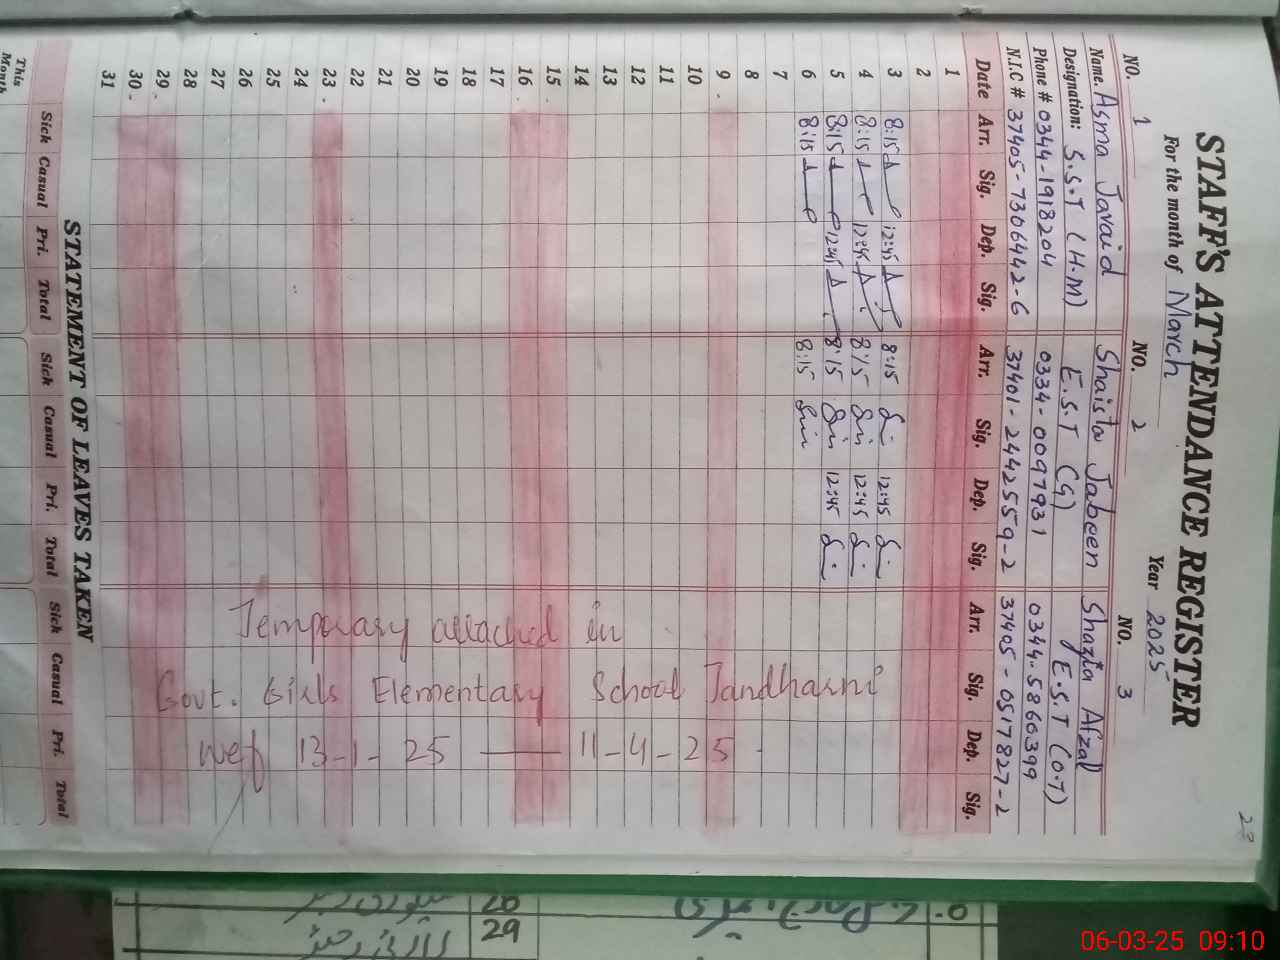 28
STAFF'S ATTENDANCE REGISTER
For the month of March Year 2025
NO. 1 NO. 2 NO. 3
Name. Asma Javaid Shaista Jabeen Shazia Afzal
Designation: S.S.T (H.M) E.S.T (G) E.S.T (O.T)
Phone # 0344-1918204 0334-0097931 0344-5866399
N.I.C # 37405-7306442-6 37401-2442559-2 37405-0517827-2
Date Arr. Sig. Dep. Sig. Arr. Sig. Dep. Sig. Arr. Sig. Dep. Sig.
1
2
3 8:15 12:45 8:15 12:45
4 8:15 12:45 8:15 12:45
5 8:15 12:45 8:15 12:45
6 8:15 8:15
7
8
9
10
11
12
13
14
15
16
17
18
19
20
21
22
23
24
25
26
27
28
29
30
31
Temporary attached in
Govt. Girls Elementary School Jandharni
wef 13-1-25 — 11-4-25
STATEMENT OF LEAVES TAKEN
Sick Casual Pri. Total Sick Casual Pri. Total Sick Casual Pri. Total
This
Month
29
06-03-25 09:10